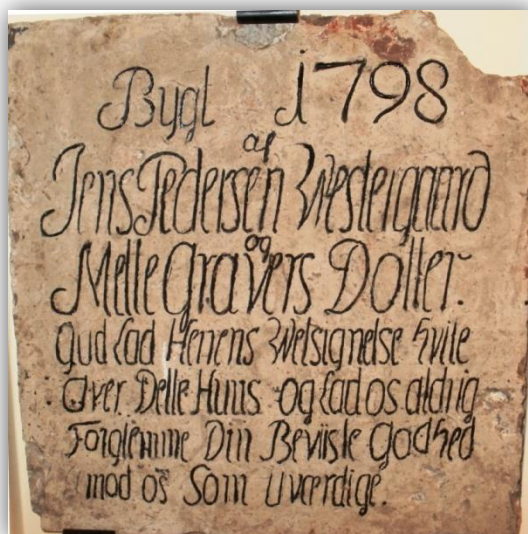 Bygt i 1798
af
Jens Pedersen Westergaard
og
Mette Gravers Dotter.
Gud Lad Herrens Welsignelse Hvile
Over Dette Huus og Lad os aldrig
Forglemme Din Beviiste Godhed
imod os Som Uværdige.